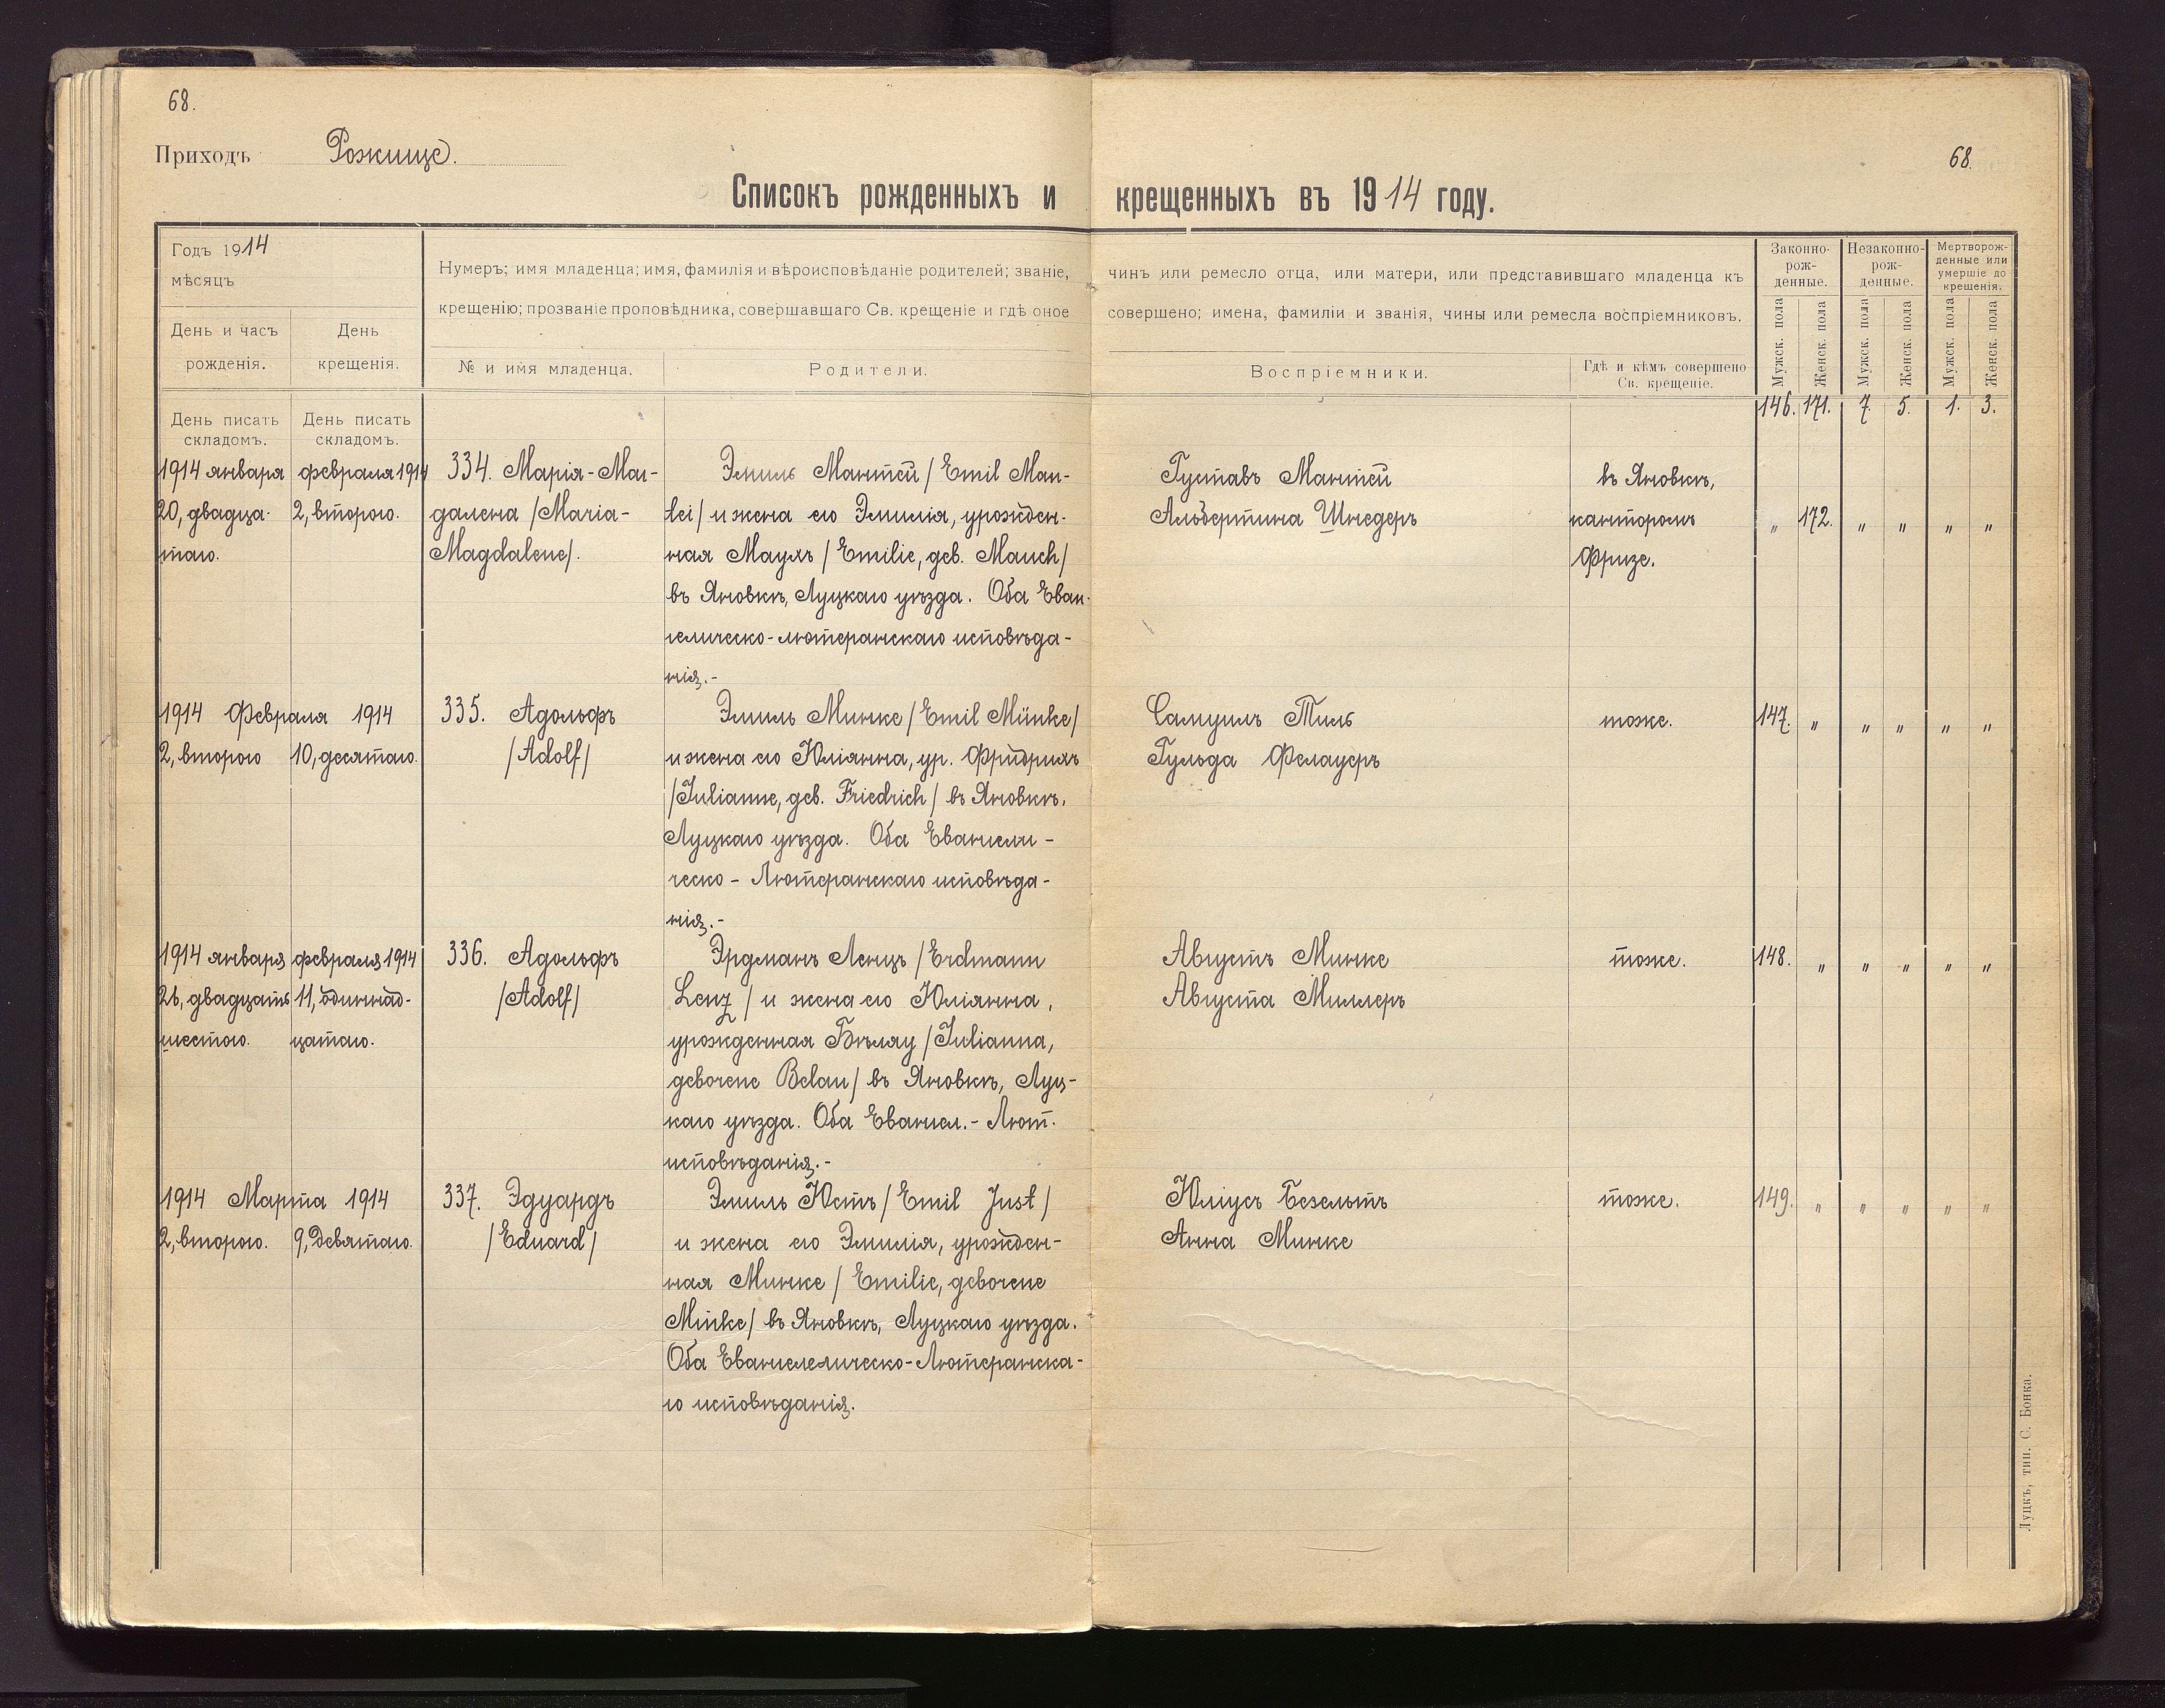 68.
Приходъ Рожище.
68.
Списокъ рожденныхъ и крещенныхъ въ 1914 году.
Годъ 1914
мѣсяцъ
День и часъ
рожденія.
День
крещенія.
Нумеръ; имя младенца; имя, фамилія и вѣроисповѣданіе родителей; званіе, чинъ или ремесло отца, или матери, или представившаго младенца къ
крещенію; прозваніе проповѣдника, совершавшаго Св. крещеніе и гдѣ оное совершено; имена, фамиліи и званія, чины или ремесла воспріемниковъ.
№ и имя младенца.
Родители.
Воспріемники.
Гдѣ и кѣмъ совершено
Св. крещеніе.
Законно-
рож-
денные.
Незаконно-
рож-
денные.
Мертворож-
денные или
умершіе до
крещенія.
Мужск. пола
Женск. пола
Мужск. пола
Женск. пола
Мужск. пола
Женск. пола
День писать
складомъ.
День писать
складомъ.
146. 171. 7. 5. 1. 3.
1914 января
20, двадца-
таго.
февраля 1914
2, второго.
334. Марія-Маг-
далена /Maria-
Magdalene/.
Эмиль Мантей / Emil Man-
tei/ и жена его Эмилія, урожден-
ная Маухъ / Emilie, geb. Mauch/
въ Яновкѣ, Луцкаго уѣзда. Оба Еван-
гелическо-лютеранскаго исповѣда-
нія.-
Густавъ Мантей
Альбертина Шнедеръ
въ Яновкѣ,
канторомъ
Фризе.
" 172. " " " "
1914 Февраля 1914
2, второго
10, десятаго.
335. Адольфъ
/Adolf/
Эмиль Минке / Emil Münke/
и жена его Юліанна, ур. Фридрихъ
/Julianne, geb. Friedrich / въ Яновкѣ,
Луцкаго уѣзда. Оба Евангели-
ческо - Лютеранскаго исповѣда-
нія.-
Самуилъ Тиль
Гульда Фелауеръ
тоже.
147. " " " " "
1914 января
26, двадцать
шестого.
февраля 1914
11, одиннад-
цатаго.
336. Адольфъ
/Adolf/
Эрдманъ Ленцъ / Erdmann
Lenz / и жена его Юліанна,
урожденная Бѣлау / Julianna,
geborene Belau/ въ Яновкѣ, Луц-
каго уѣзда. Оба Евангел.- Лют.
исповѣданія.-
Августъ Минке
Августа Миллеръ
тоже.
148. " " " " "
1914 Марта 1914
2, второго.
9, девятаго.
337. Эдуардъ
/Eduard/
Эмиль Юстъ / Emil Just /
и жена его Эмилія, урожден-
ная Минке / Emilie, geborene
Minke/ въ Яновкѣ, Луцкаго уѣзда.
Оба Евангелелическо-Лютеранска-
го исповѣданія.
Юліусъ Безельтъ
Анна Минке
тоже.
149. " " " " "
Луцкъ, тип. С. Бонка.